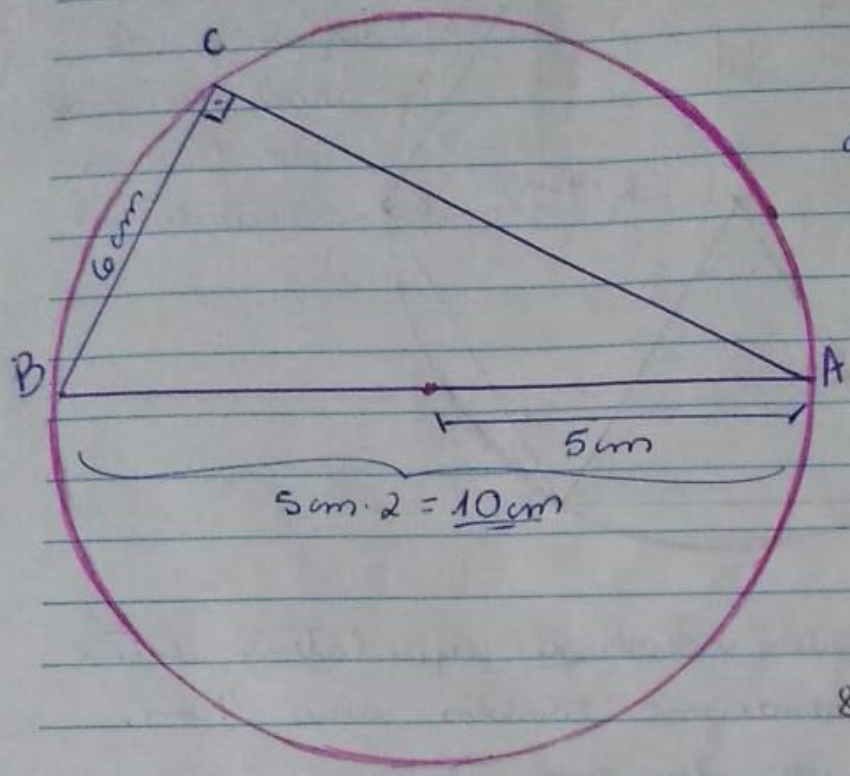 C
6cm
B
A
5cm
5cm · 2 = 10cm
8